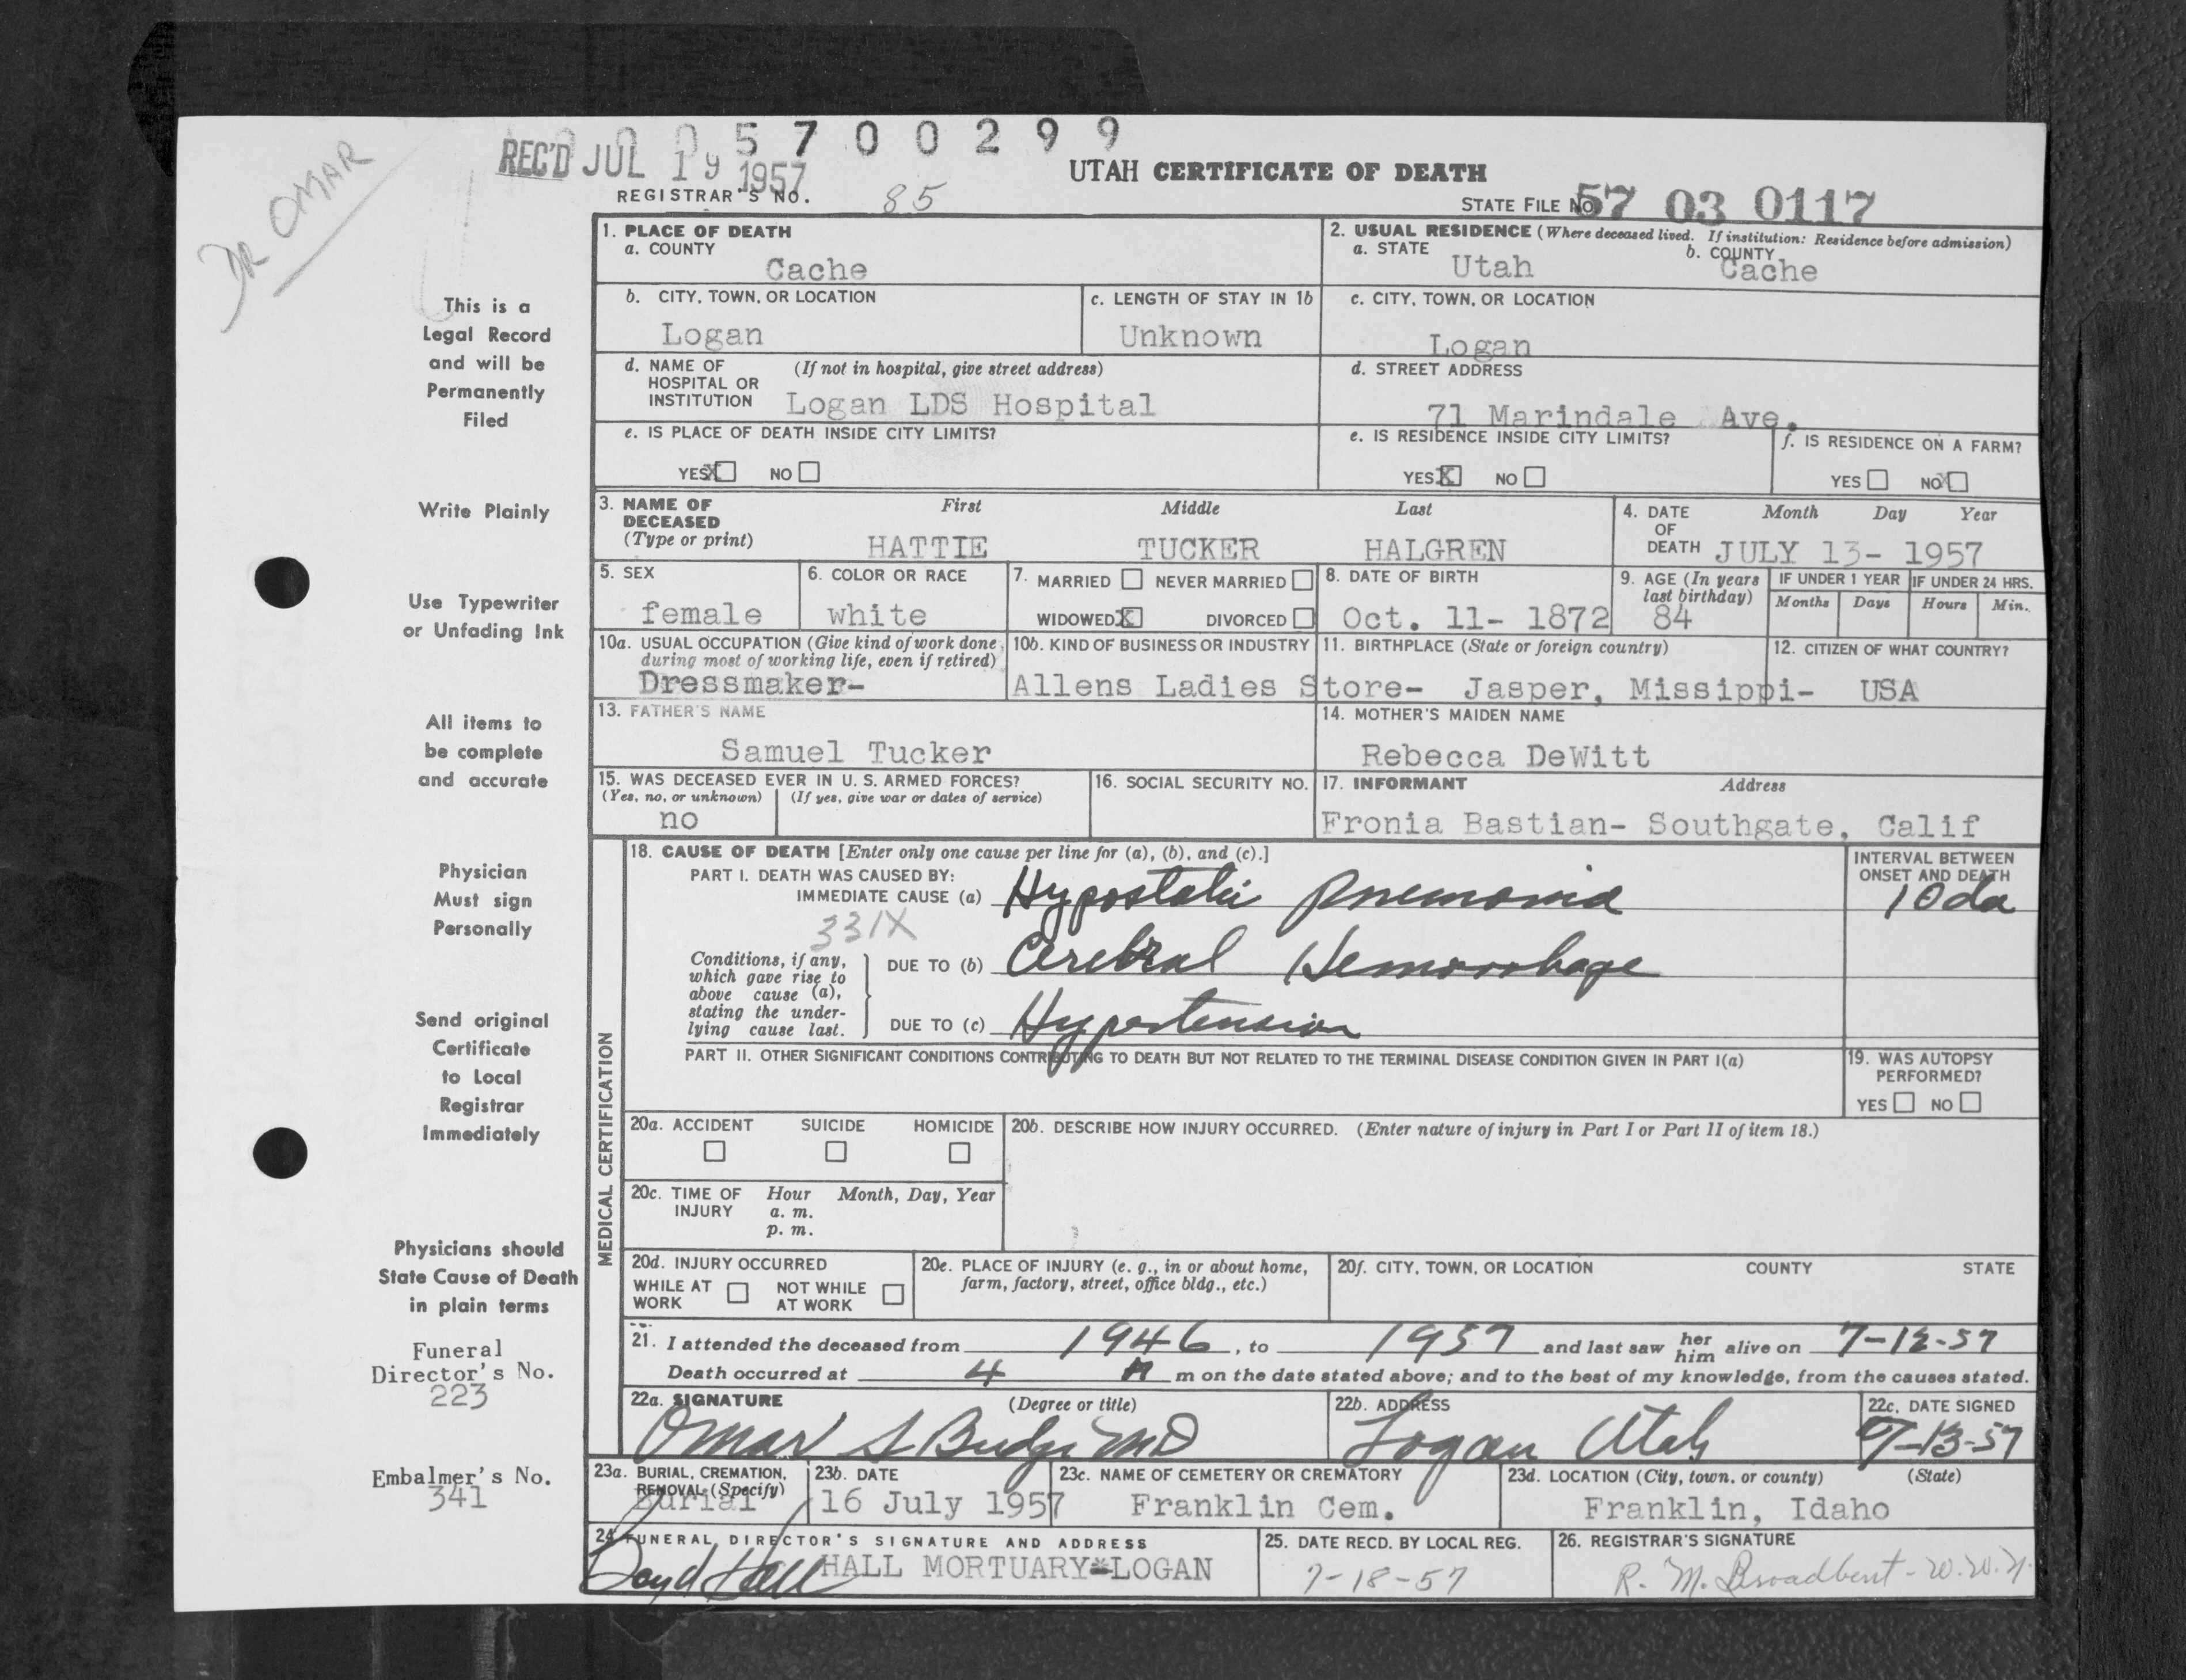 DR OMAR
0 0 0 5 7 0 0 2 9 9
REC'D JUL 19 1957
UTAH CERTIFICATE OF DEATH
REGISTRAR'S NO. 85
STATE FILE NO. 57 03 0117
This is a
Legal Record
and will be
Permanently
Filed
Write Plainly
Use Typewriter
or Unfading Ink
All items to
be complete
and accurate
Physician
Must sign
Personally
Send original
Certificate
to Local
Registrar
Immediately
Physicians should
State Cause of Death
in plain terms
Funeral
Director's No.
223
Embalmer's No.
341
1. PLACE OF DEATH
a. COUNTY
Cache
2. USUAL RESIDENCE (Where deceased lived. If institution: Residence before admission)
a. STATE b. COUNTY
Utah Cache
b. CITY, TOWN, OR LOCATION
Logan
c. LENGTH OF STAY IN 1b
Unknown
c. CITY, TOWN, OR LOCATION
Logan
d. NAME OF (If not in hospital, give street address)
HOSPITAL OR
INSTITUTION Logan LDS Hospital
d. STREET ADDRESS
71 Marindale Ave.
e. IS PLACE OF DEATH INSIDE CITY LIMITS?
YES X NO
e. IS RESIDENCE INSIDE CITY LIMITS?
YES X NO
f. IS RESIDENCE ON A FARM?
YES NO X
3. NAME OF First Middle Last
DECEASED
(Type or print) HATTIE TUCKER HALGREN
4. DATE Month Day Year
OF
DEATH JULY 13- 1957
5. SEX
female
6. COLOR OR RACE
white
7. MARRIED NEVER MARRIED
WIDOWED X DIVORCED
8. DATE OF BIRTH
Oct. 11- 1872
9. AGE (In years
last birthday)
84
IF UNDER 1 YEAR IF UNDER 24 HRS.
Months Days Hours Min.
10a. USUAL OCCUPATION (Give kind of work done
during most of working life, even if retired)
Dressmaker-
10b. KIND OF BUSINESS OR INDUSTRY
Allens Ladies Store-
11. BIRTHPLACE (State or foreign country)
Jasper, Missippi-
12. CITIZEN OF WHAT COUNTRY?
USA
13. FATHER'S NAME
Samuel Tucker
14. MOTHER'S MAIDEN NAME
Rebecca DeWitt
15. WAS DECEASED EVER IN U. S. ARMED FORCES?
(Yes, no, or unknown) (If yes, give war or dates of service)
no
16. SOCIAL SECURITY NO.
17. INFORMANT Address
Fronia Bastian- Southgate, Calif
MEDICAL CERTIFICATION
18. CAUSE OF DEATH [Enter only one cause per line for (a), (b), and (c).]
PART I. DEATH WAS CAUSED BY:
IMMEDIATE CAUSE (a) Hypostatic pnemonia
INTERVAL BETWEEN
ONSET AND DEATH
10 da
331X
Conditions, if any,
which gave rise to
above cause (a),
stating the under-
lying cause last.
DUE TO (b) Cerebral Hemorrhage
DUE TO (c) Hypertension
PART II. OTHER SIGNIFICANT CONDITIONS CONTRIBUTING TO DEATH BUT NOT RELATED TO THE TERMINAL DISEASE CONDITION GIVEN IN PART I(a)
19. WAS AUTOPSY
PERFORMED?
YES NO
20a. ACCIDENT SUICIDE HOMICIDE
20b. DESCRIBE HOW INJURY OCCURRED. (Enter nature of injury in Part I or Part II of item 18.)
20c. TIME OF Hour Month, Day, Year
INJURY a. m.
p. m.
20d. INJURY OCCURRED
WHILE AT NOT WHILE
WORK AT WORK
20e. PLACE OF INJURY (e. g., in or about home,
farm, factory, street, office bldg., etc.)
20f. CITY, TOWN, OR LOCATION COUNTY STATE
21. I attended the deceased from 1946, to 1957 and last saw her him alive on 7-12-57
Death occurred at 4 A m on the date stated above; and to the best of my knowledge, from the causes stated.
22a. SIGNATURE (Degree or title)
Omar S Budge MD
22b. ADDRESS
Logan Utah
22c. DATE SIGNED
7-13-57
23a. BURIAL, CREMATION,
REMOVAL (Specify)
Burial
23b. DATE
16 July 1957
23c. NAME OF CEMETERY OR CREMATORY
Franklin Cem.
23d. LOCATION (City, town, or county) (State)
Franklin, Idaho
24 FUNERAL DIRECTOR'S SIGNATURE AND ADDRESS
Boyd Hall HALL MORTUARY-LOGAN
25. DATE RECD. BY LOCAL REG.
7-18-57
26. REGISTRAR'S SIGNATURE
R. M. Broadbent-